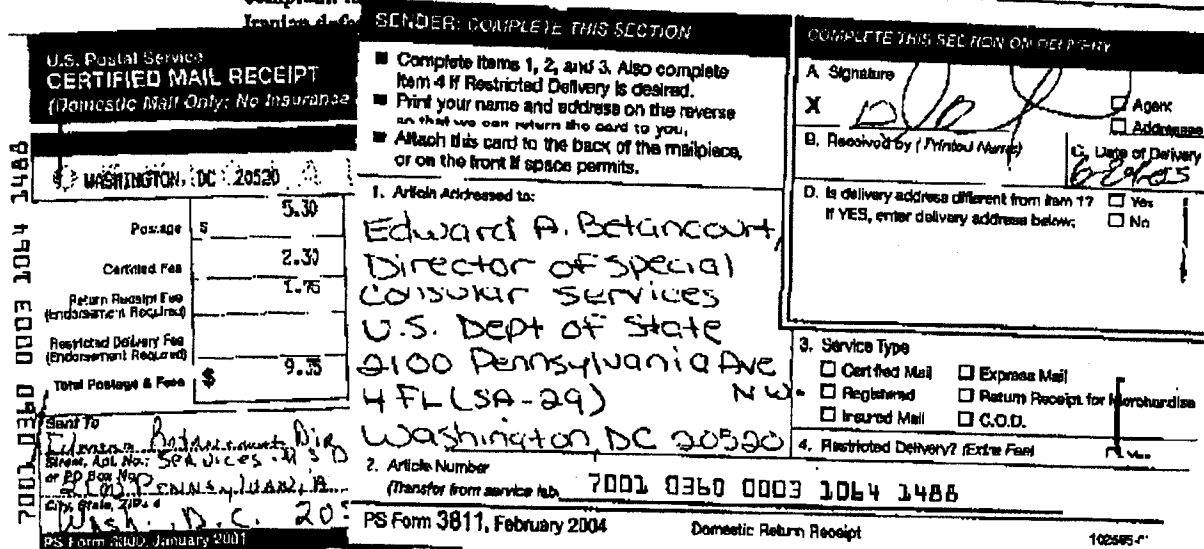 Iranian defe
U.S. Postal Service
CERTIFIED MAIL RECEIPT
(Domestic Mail Only; No Insurance
WASHINGTON, DC 20520
Postage $ 5.30
Certified Fee 2.30
Return Receipt Fee (Endorsement Required) 1.75
Restricted Delivery Fee (Endorsement Required)
Total Postage & Fees $ 9.35
Sent To
Street, Apt. No.; Services
or PO Box No.
City, State, ZIP+4
Wash., D.C. 205
PS Form 3800, January 2001
7001 0360 0003 1064 1488
SENDER: COMPLETE THIS SECTION
■ Complete items 1, 2, and 3. Also complete
item 4 if Restricted Delivery is desired.
■ Print your name and address on the reverse
so that we can return the card to you.
■ Attach this card to the back of the mailpiece,
or on the front if space permits.
1. Article Addressed to:
Edward A. Betancourt,
Director of Special
Consular Services
U.S. Dept of State
2100 Pennsylvania Ave
4 FL (SA-29) NW.
Washington DC 20520
2. Article Number
(Transfer from service lab 7001 0360 0003 1064 1488
PS Form 3811, February 2004 Domestic Return Receipt 102595-
COMPLETE THIS SECTION ON DELIVERY
A. Signature
X
☐ Agent
☐ Addressee
B. Received by (Printed Name) C. Date of Delivery
D. Is delivery address different from item 1? ☐ Yes
If YES, enter delivery address below: ☐ No
3. Service Type
☐ Certified Mail ☐ Express Mail
☐ Registered ☐ Return Receipt for Merchandise
☐ Insured Mail ☐ C.O.D.
4. Restricted Delivery? (Extra Fee)